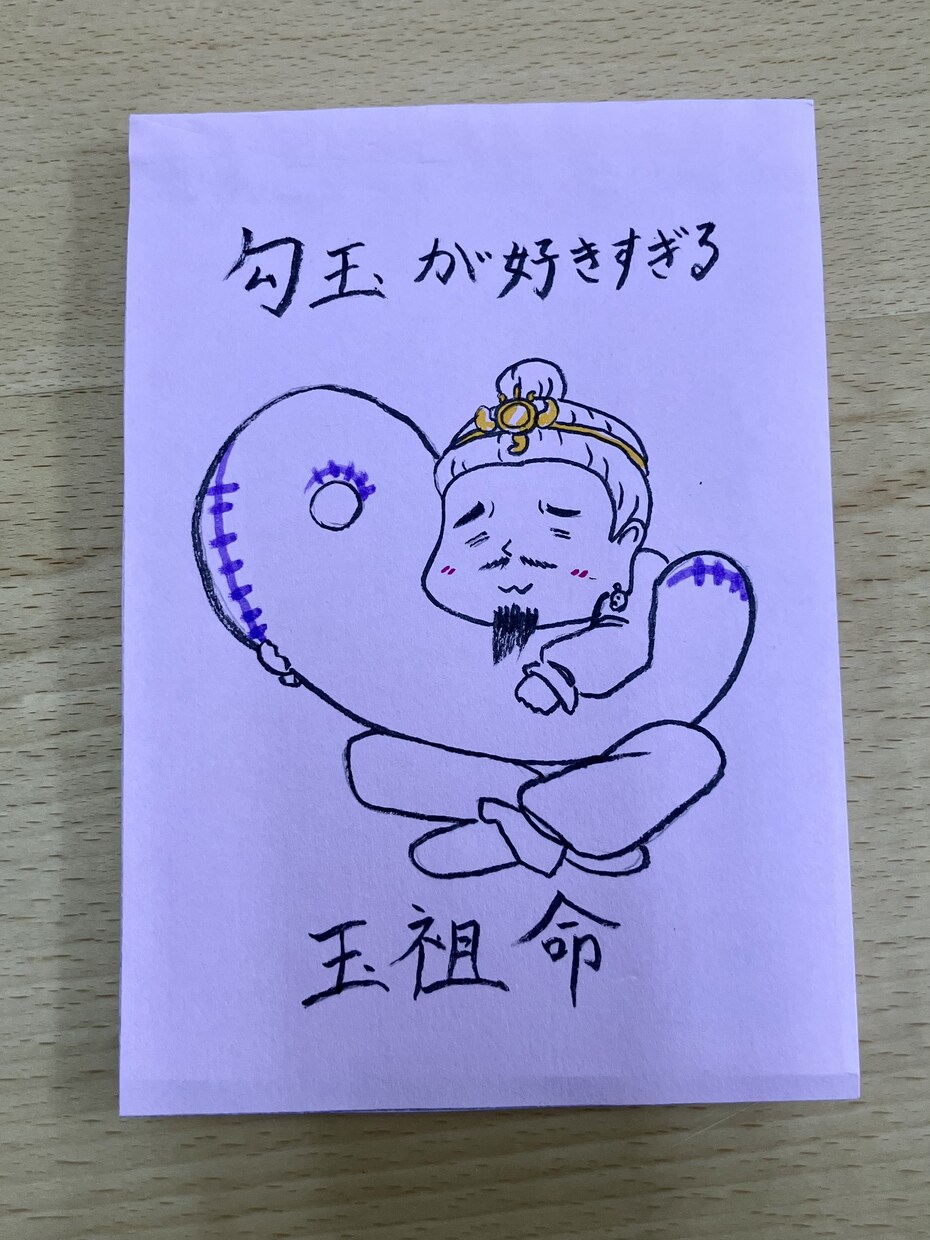 勾玉が好きすぎる
玉祖命